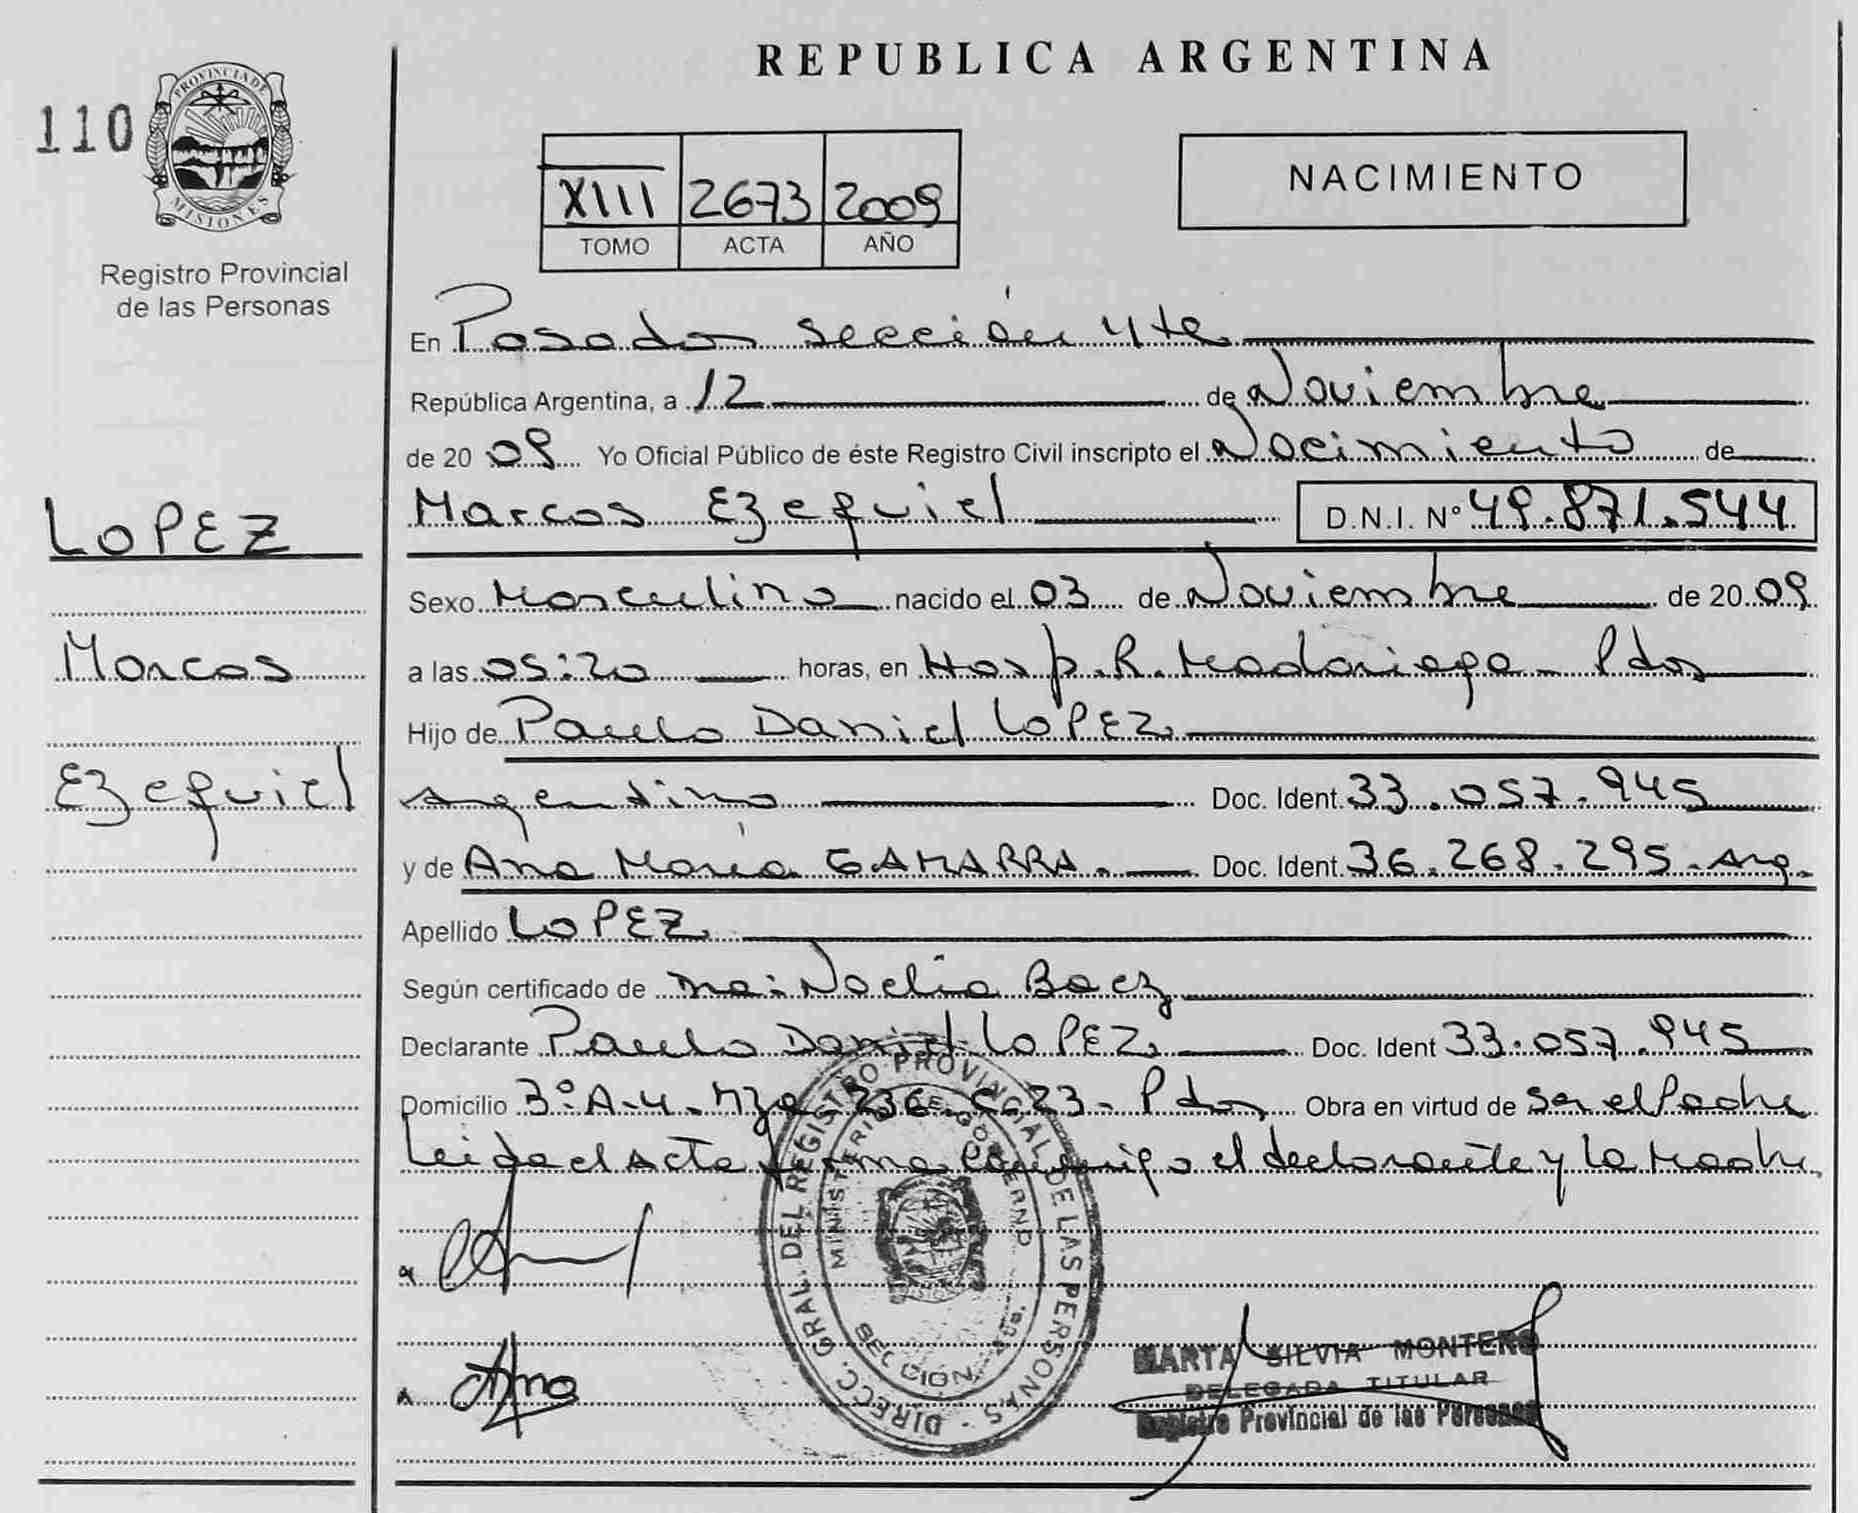 REPUBLICA ARGENTINA
110
PROVINCIA DE
MISIONES
Registro Provincial
de las Personas
XIII 2673 2009
TOMO ACTA AÑO
NACIMIENTO
En Posadas Sección 4ta
República Argentina, a 12 de Noviembre
de 20 09 Yo Oficial Público de éste Registro Civil inscripto el Nacimiento de
Marcos Ezequiel D.N.I. N° 49.871.544
LOPEZ
Marcos
Ezequiel
Sexo Masculino nacido el 03 de Noviembre de 20 09
a las 05:20 horas, en Hosp. R. Madariaga - Pdas
Hijo de Paulo Daniel LOPEZ
Argentino Doc. Ident. 33.057.945
y de Ana María GAMARRA. Doc. Ident. 36.268.295. Arg.
Apellido LOPEZ
Según certificado de Noelia Baez
Declarante Paulo Daniel LOPEZ Doc. Ident 33.057.945
Domicilio 3° A-4. Mza 236. C. 23 - Pdas Obra en virtud de Ser el Padre
Leida el Acta firma conmigo el declarante y la Madre.
DIRECC. GRAL. DEL REGISTRO PROVINCIAL DE LAS PERSONAS
MINISTERIO DE GOBIERNO
SECCION
Ana
MARTA SILVIA MONTERO
DELEGADA TITULAR
Registro Provincial de las Personas